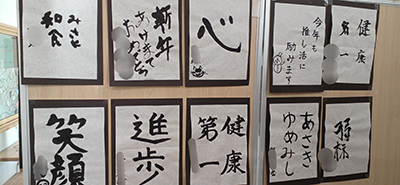 健康
第一
今年も
推し活に
励みます
心
新年
あけまして
おめでとう
みさと
和食
あさき
ゆめみし
健康
第一
進歩
笑顔